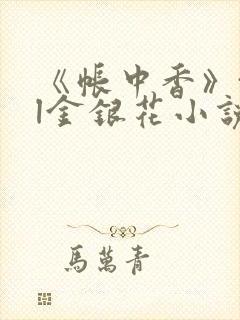 《帳中香》
l金銀花小說
馬萬青